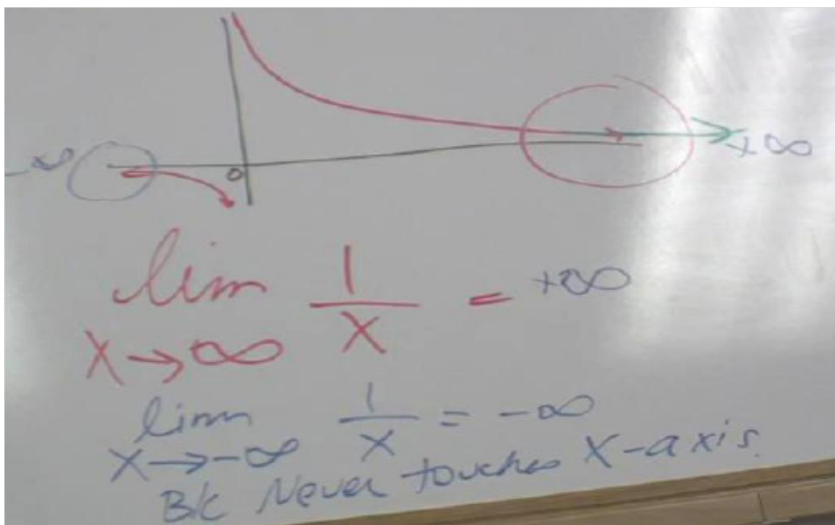 -∞
0
+∞
lim 1/x = +∞
x→∞
lim 1/x = -∞
x→-∞
B/c Never touches X-axis.